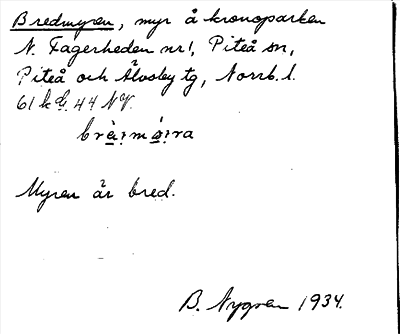 Bredmyren, myr å kronoparken
N. Fagerheden nr 1, Piteå sn,
Piteå och Älvsby tg, Norrb. l.
61 k G. 44 NV.
Myren är bred.
B. Nygren 1934.